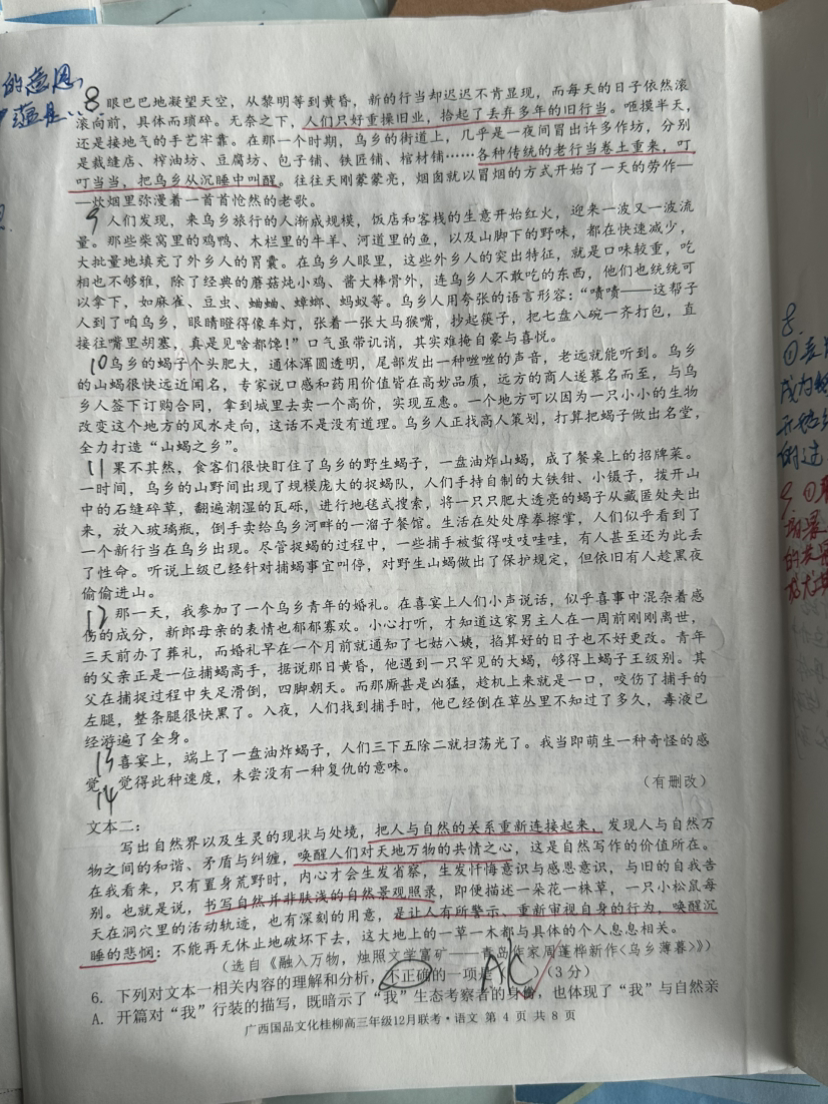 的意思,
8 眼巴巴地凝望天空，从黎明等到黄昏，新的行当却迟迟不肯显现，而每天的日子依然滚
滚向前，具体而琐碎。无奈之下，人们只好重操旧业，拾起了丢弃多年的旧行当。咂摸半天，
还是接地气的手艺牢靠。在那一个时期，乌乡的街道上，几乎是一夜间冒出许多作坊，分别
是裁缝店、榨油坊、豆腐坊、包子铺、铁匠铺、棺材铺……各种传统的老行当卷土重来，叮
叮当当，把乌乡从沉睡中叫醒。往往天刚蒙蒙亮，烟囱就以冒烟的方式开始了一天的劳作—
—炊烟里弥漫着一首首怆然的老歌。
9 人们发现，来乌乡旅行的人渐成规模，饭店和客栈的生意开始红火，迎来一波又一波流
量。那些柴窝里的鸡鸭、木栏里的牛羊、河道里的鱼，以及山脚下的野味，都在快速减少，
大批量地填充了外乡人的胃囊。在乌乡人眼里，这些外乡人的突出特征，就是口味较重，吃
相也不够雅，除了经典的蘑菇炖小鸡、酱大棒骨外，连乌乡人不敢吃的东西，他们也统统可
以拿下，如麻雀、豆虫、蛐蛐、蟑螂、蚂蚁等。乌乡人用夸张的语言形容：“啧啧——这帮子
人到了咱乌乡，眼睛瞪得像车灯，张着一张大马猴嘴，抄起筷子，把七盘八碗一齐打包，直
接往嘴里胡塞，真是见啥都馋！”口气虽带讥诮，其实难掩自豪与喜悦。
10 乌乡的蝎子个头肥大，通体浑圆透明，尾部发出一种咝咝的声音，老远就能听到。乌乡
的山蝎很快远近闻名，专家说口感和药用价值皆在高妙品质，远方的商人遂慕名而至，与乌
乡人签下订购合同，拿到城里去卖一个高价，实现互惠。一个地方可以因为一只小小的生物
改变这个地方的风水走向，这话不是没有道理。乌乡人正找高人策划，打算把蝎子做出名堂，
全力打造“山蝎之乡”。
11 果不其然，食客们很快盯住了乌乡的野生蝎子，一盘油炸山蝎，成了餐桌上的招牌菜。
一时间，乌乡的山野间出现了规模庞大的捉蝎队，人们手持自制的大铁钳、小镊子，拨开山
中的石缝碎草，翻遍潮湿的瓦砾，进行地毯式搜索，将一只只肥大透亮的蝎子从藏匿处夹出
来，放入玻璃瓶，倒手卖给乌乡河畔的一溜子餐馆。生活在处处摩拳擦掌，人们似乎看到了
一个新行当在乌乡出现。尽管捉蝎的过程中，一些捕手被蜇得吱吱哇哇，有人甚至还为此丢
了性命。听说上级已经针对捕蝎事宜叫停，对野生山蝎做出了保护规定，但依旧有人趁黑夜
偷偷进山。
12 那一天，我参加了一个乌乡青年的婚礼。在喜宴上人们小声说话，似乎喜事中混杂着感
伤的成分，新郎母亲的表情也郁郁寡欢。小心打听，才知道这家男主人在一周前刚刚离世，
三天前办了葬礼，而婚礼早在一个月前就通知了七姑八姨，掐算好的日子也不好更改。青年
的父亲正是一位捕蝎高手，据说那日黄昏，他遇到一只罕见的大蝎，够得上蝎子王级别。其
父在捕捉过程中失足滑倒，四脚朝天。而那厮甚是凶猛，趁机上来就是一口，咬伤了捕手的
左腿，整条腿很快黑了。入夜，人们找到捕手时，他已经倒在草丛里不知过了多久，毒液已
经游遍了全身。
13 喜宴上，端上了一盘油炸蝎子，人们三下五除二就扫荡光了。我当即萌生一种奇怪的感
觉，觉得此种速度，未尝没有一种复仇的意味。
14
（有删改）
文本二：
写出自然界以及生灵的现状与处境，把人与自然的关系重新连接起来，发现人与自然万
物之间的和谐、矛盾与纠缠，唤醒人们对天地万物的共情之心，这是自然写作的价值所在。
在我看来，只有置身荒野时，内心才会生发省察，生发忏悔意识与感恩意识，与旧的自我告
别。也就是说，书写自然并非肤浅的自然景观照录，即便描述一朵花一株草，一只小松鼠每
天在洞穴里的活动轨迹，也有深刻的用意，是让人有所警示、重新审视自身的行为，唤醒沉
睡的悲悯：不能再无休止地破坏下去，这大地上的一草一木都与具体的个人息息相关。
（选自《融入万物，烛照文学富矿——青岛作家周蓬桦新作〈乌乡薄暮〉》）
6. 下列对文本一相关内容的理解和分析，不正确的一项是（ ）（3 分）
A. 开篇对“我”行装的描写，既暗示了“我”生态考察者的身份，也体现了“我”与自然亲
广西国品文化桂柳高三年级12月联考·语文 第 4 页 共 8 页
8.
9.